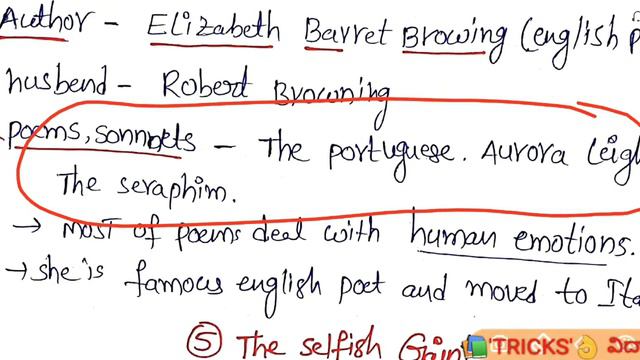 Author - Elizabeth Barret Browing (english p
husbend - Robert Browning
poems, sonnets - The portuguese. Aurora Leigh
The seraphim.
→ most of poems deal with human emotions.
→ she is famous english poet and moved to Ita
⑤ The selfish Gain
'TRICKS'👌 ವಿದ